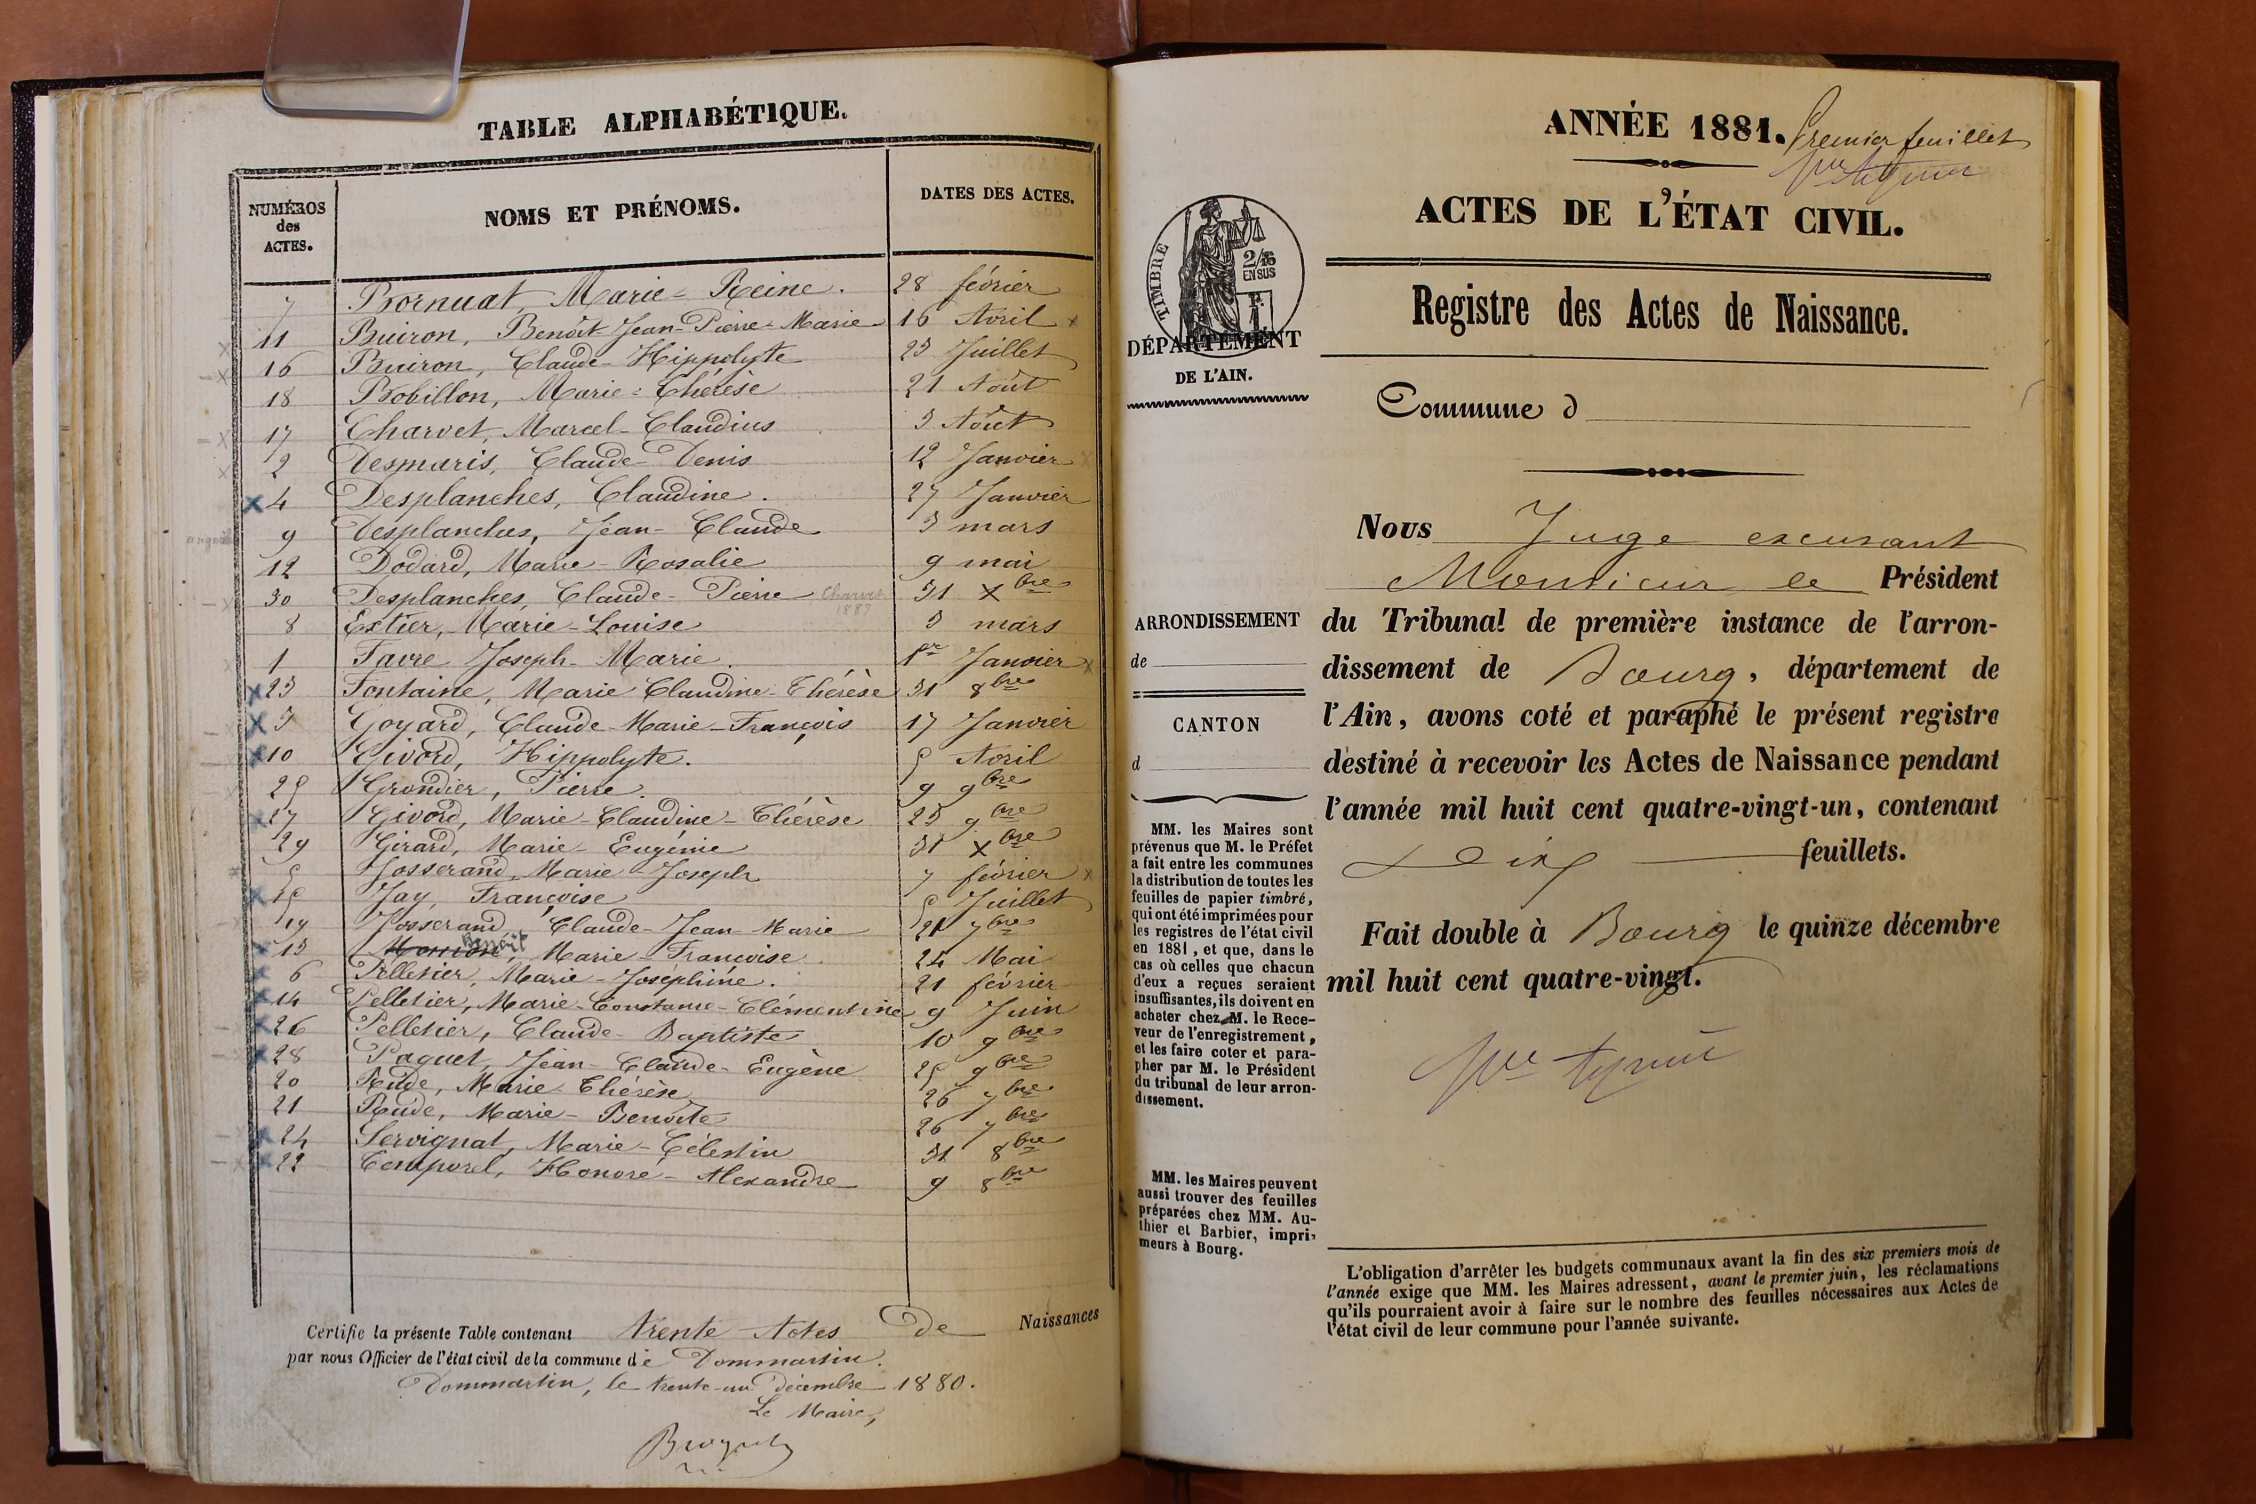 TABLE ALPHABÉTIQUE.
NUMÉROS des ACTES. NOMS ET PRÉNOMS. DATES DES ACTES.
7 Bornuat Marie-Reine. 28 février
11 Buiron, Benoît Jean-Pierre-Marie 16 Avril
16 Buiron, Claude-Hippolyte 23 Juillet
18 Bobillon, Marie-Thérèse 21 Août
17 Charvet, Marcel-Claudius 3 Août
2 Desmaris, Claude-Denis 12 Janvier
x 4 Desplanches, Claudine. 27 Janvier
9 Desplanches, Jean-Claude 3 mars
12 Dodard, Marie-Rosalie 9 mai
30 Desplanches, Claude-Pierre 31 Xbre
8 Extier, Marie-Louise 3 mars
1 Favre Joseph-Marie. 1er Janvier
x 23 Fontaine, Marie Claudine-Thérèse 31 8bre
x 3 Goyard, Claude-Marie-François 17 Janvier
x 10 Givord, Hippolyte. 5 Avril
25 Grondier, Pierre. 9 9bre
x 27 Givord, Marie-Claudine-Thérèse 23 9bre
29 Girard, Marie-Eugénie 31 Xbre
5 Josserand, Marie-Joseph 7 février
x 15 Jay, Françoise 5 Juillet
19 Josserand, Claude-Jean-Marie 21 7bre
Benoît
x 13 Marie-Françoise. 24 Mai
x 6 Pelletier, Marie-Joséphine. 21 février
x 14 Pelletier, Marie-Constance-Clémentine 9 Juin
x 26 Pelletier, Claude-Baptiste 10 9bre
x 28 Paquet, Jean-Claude-Eugène 25 9bre
20 Rude, Marie-Thérèse 26 7bre
21 Rude, Marie-Benoîte 26 7bre
x 24 Servignat, Marie-Célestin 31 8bre
x 22 Temporel, Honoré-Alexandre 9 8bre
Certifie la présente Table contenant trente Actes de Naissances
par nous Officier de l'état civil de la commune de Dommartin.
Dommartin, le trente-un décembre 1880.
Le Maire,
ANNÉE 1881. Premier feuillet
ACTES DE L'ÉTAT CIVIL.
TIMBRE
2/10 EN SUS
DÉPARTEMENT
DE L'AIN.
Registre des Actes de Naissance.
Commune d
ARRONDISSEMENT
de
CANTON
d
MM. les Maires sont
prévenus que M. le Préfet
a fait entre les communes
la distribution de toutes les
feuilles de papier timbré,
qui ont été imprimées pour
les registres de l'état civil
en 1881, et que, dans le
cas où celles que chacun
d'eux a reçues seraient
insuffisantes, ils doivent en
acheter chez M. le Rece-
veur de l'enregistrement,
et les faire coter et para-
pher par M. le Président
du tribunal de leur arron-
dissement.
MM. les Maires peuvent
aussi trouver des feuilles
préparées chez MM. Au-
thier et Barbier, impri-
meurs à Bourg.
Nous Juge excusant
Monsieur le Président
du Tribunal de première instance de l'arron-
dissement de Bourg, département de
l'Ain, avons coté et paraphé le présent registre
destiné à recevoir les Actes de Naissance pendant
l'année mil huit cent quatre-vingt-un, contenant
feuillets.
Fait double à Bourg le quinze décembre
mil huit cent quatre-vingt.
L'obligation d'arrêter les budgets communaux avant la fin des six premiers mois de
l'année exige que MM. les Maires adressent, avant le premier juin, les réclamations
qu'ils pourraient avoir à faire sur le nombre des feuilles nécessaires aux Actes de
l'état civil de leur commune pour l'année suivante.